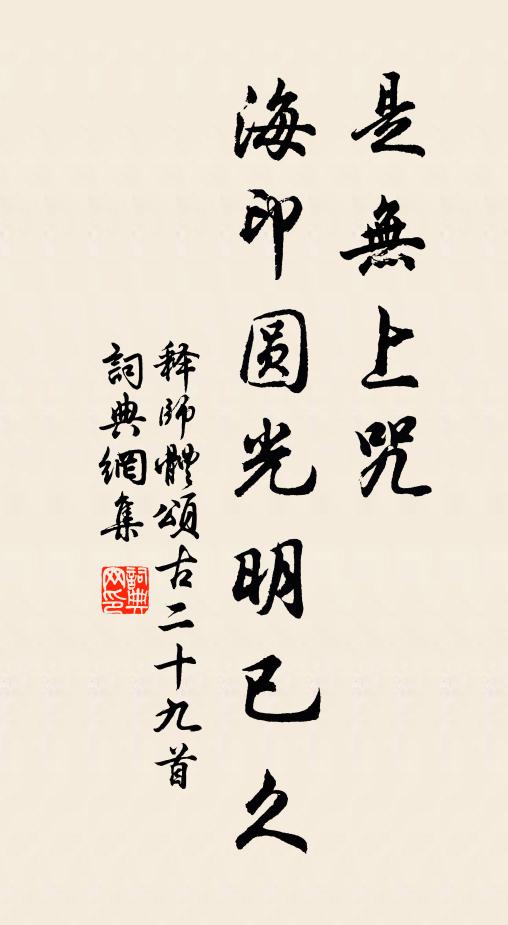 是無上咒
海印圆光明已久
释師體頌古二十九首
詞典網集
詞典
网印